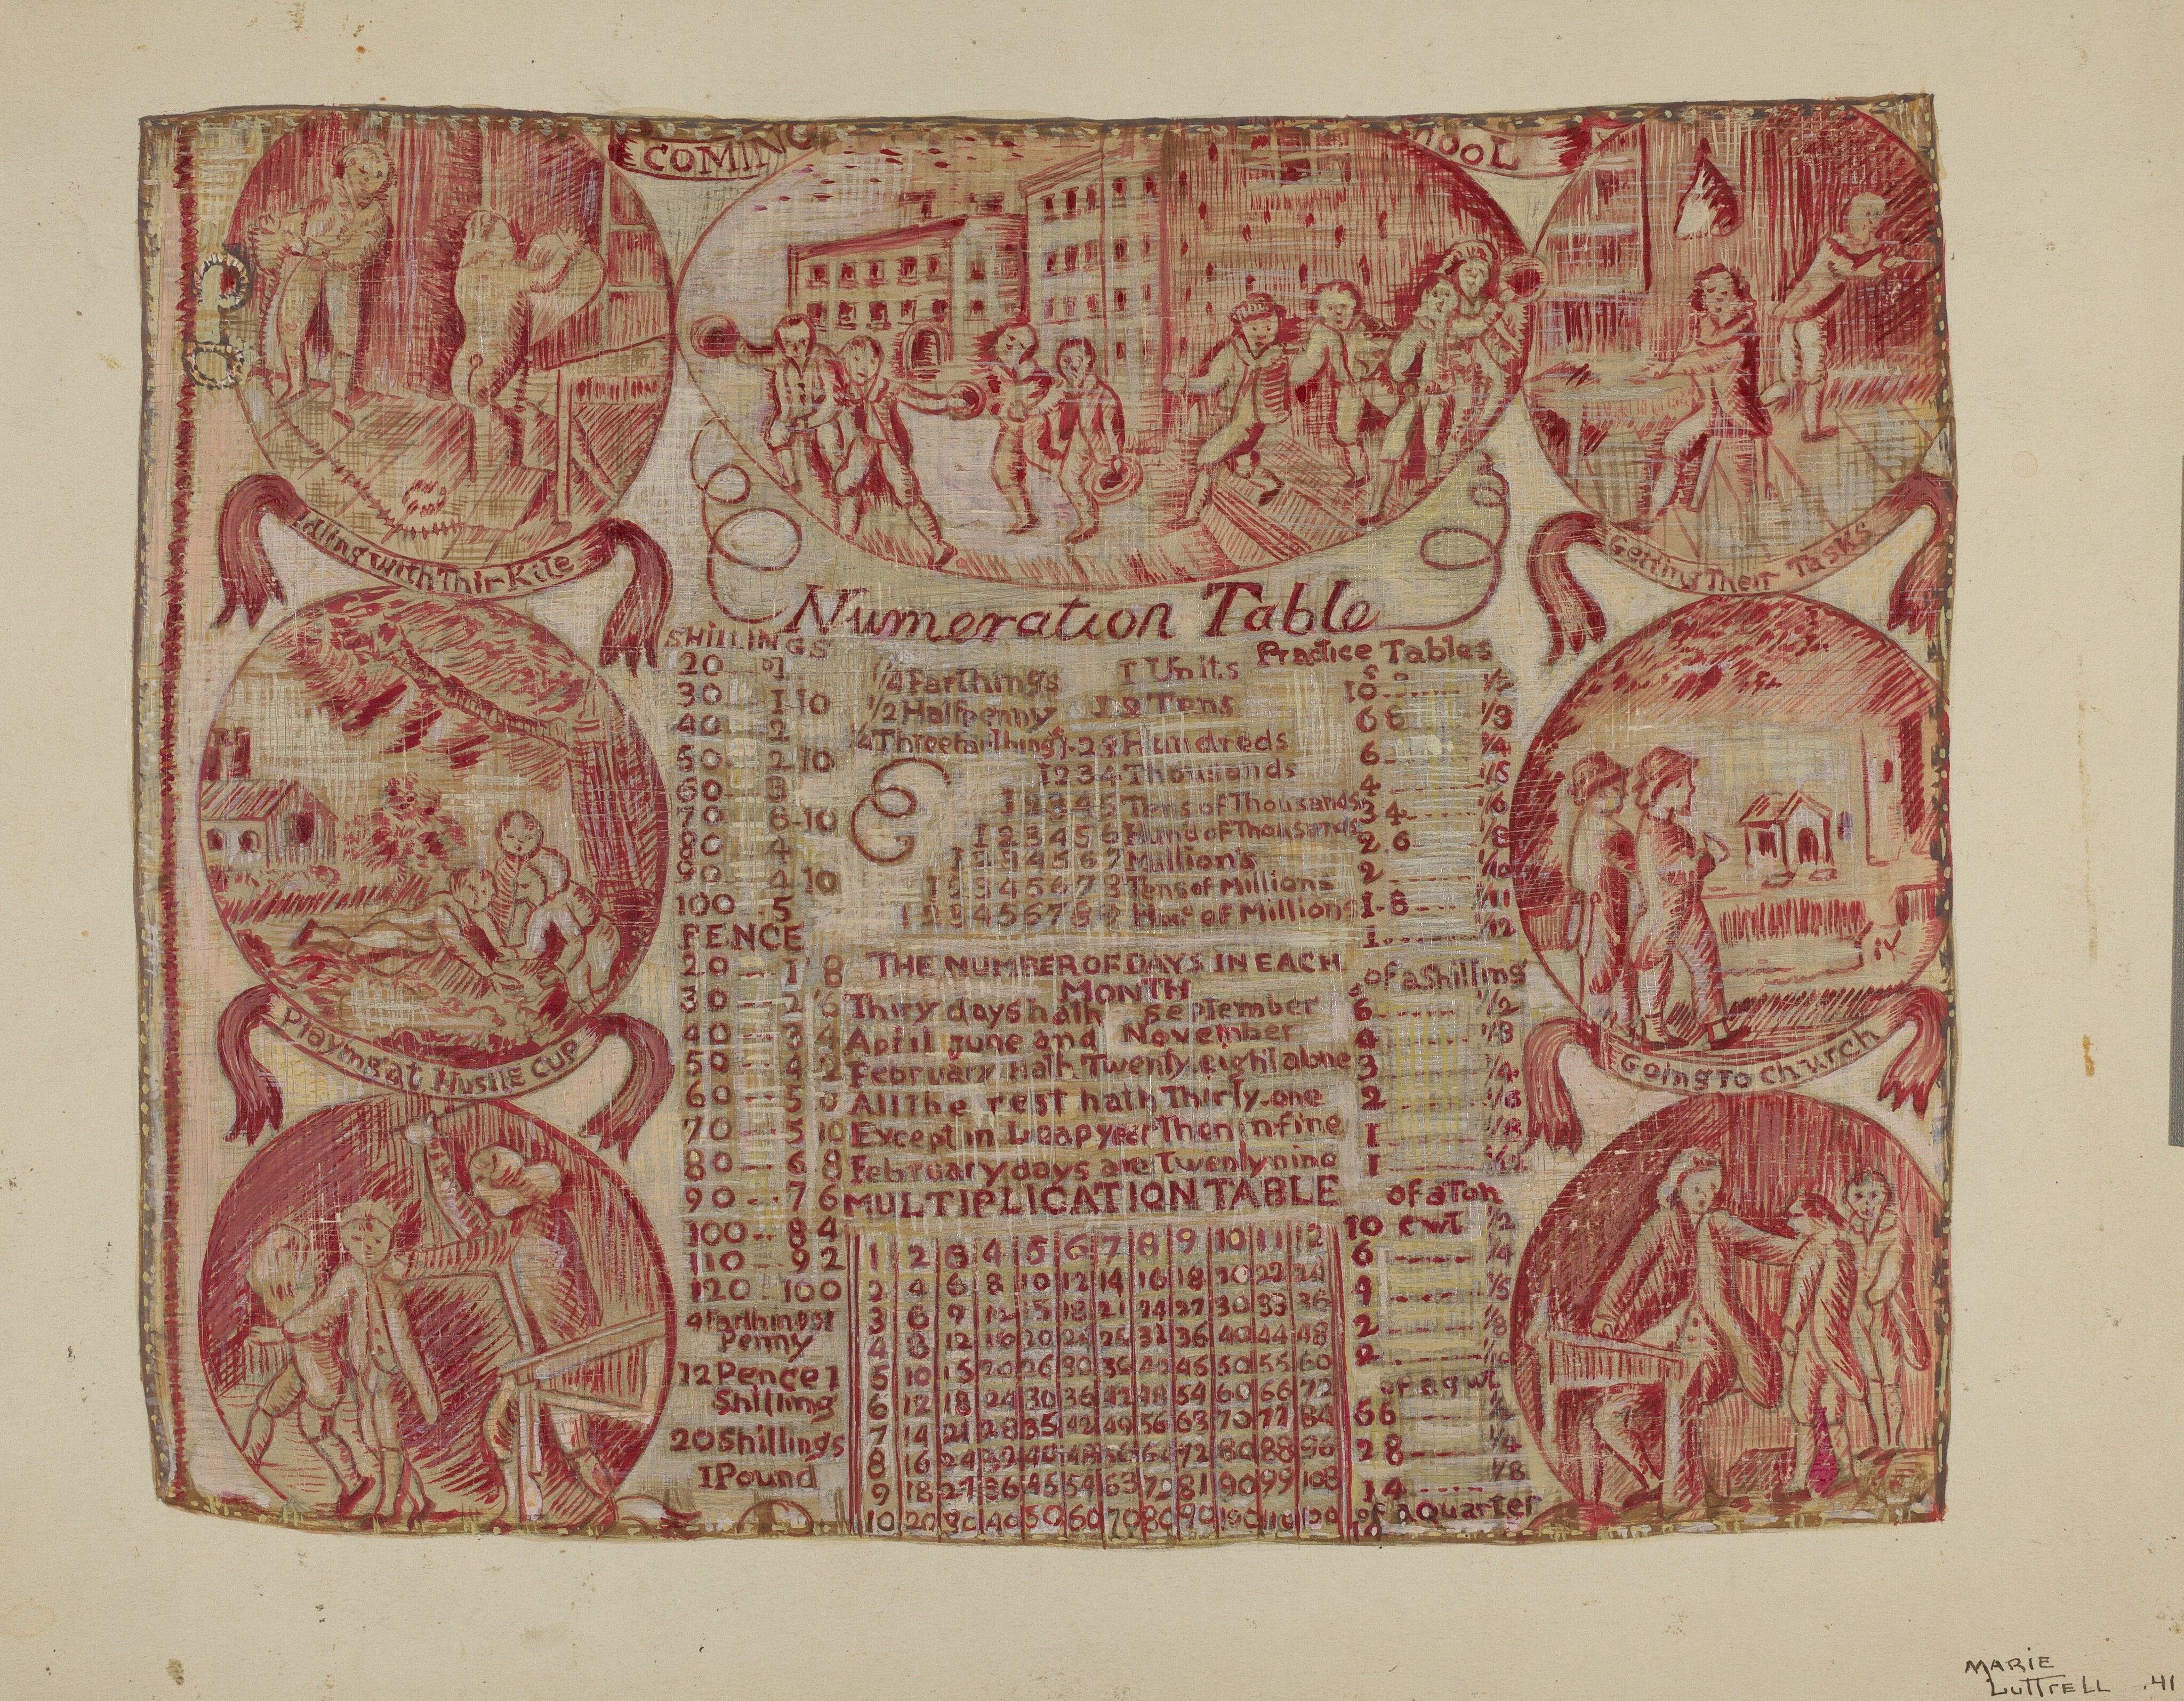 COMING
HOOL
Idling with Thir Kite
Getting Their Tasks
Numeration Table
SHILLINGS
20 1
30 1-10
40 2
50 2-10
60 3
70 10
80 4
90 4 10
100 5
PENCE
20 1 8
30 2 6
40 3 4
50 4 2
60 5 0
70 5 10
80 6 8
90 7 6
100 8 4
110 9 2
120 100
4 Farthings 1
Penny
12 Pence 1
Shilling
20 Shillings
1 Pound
1/4 Farthings
1/2 Halfpenny
Threefarthings
1 Units
12 Tens
123 Hundreds
1234 Thousands
12345 Tens of Thousands
123456 Hund of Thousands
Million's
Tens of Millions
of Millions
THE NUMBER OF DAYS IN EACH
MONTH
Thiry days hath September
April June and November
February hath Twenty eight alone
All The rest hath Thirty-one
Except in Leapyear Then in fine
February days are Twenty nine
MULTIPLICATION TABLE
1 2 3 4 5 6 7 8 9 10 11 12
2 4 6 8 10 12 14 16 18 20 22 24
3 6 9 12 15 18 21 24 27 30 33 36
4 8 12 16 20 24 28 32 36 40 44 48
5 10 15 20 26 30 36 40 45 50 55 60
6 12 18 24 30 36 42 48 54 60 66 72
7 14 21 28 35 42 49 56 63 70 77 84
8 16 24 72 80 88 96
9 18 27 36 45 54 63 72 81 90 99 108
10 20 30 40 50 60 70 80 90 100 110 120
Practice Tables
10 1/2
6 8 1/3
6 1/4
4 1/5
3 4 1/6
2.6 1/8
2 1/10
1-8 1/11
1 1/12
of a Shilling
6 1/2
4 1/3
3 1/4
2 1/6
1 1/8
1
of a Ton
10 cwt 1/2
6 1/4
4 1/5
2 1/8
2 1/10
56
28 1/4
14 1/8
of a Quarter
Playing at Hustle Cup
Going To Church
MARIE
LUTTrELL .41